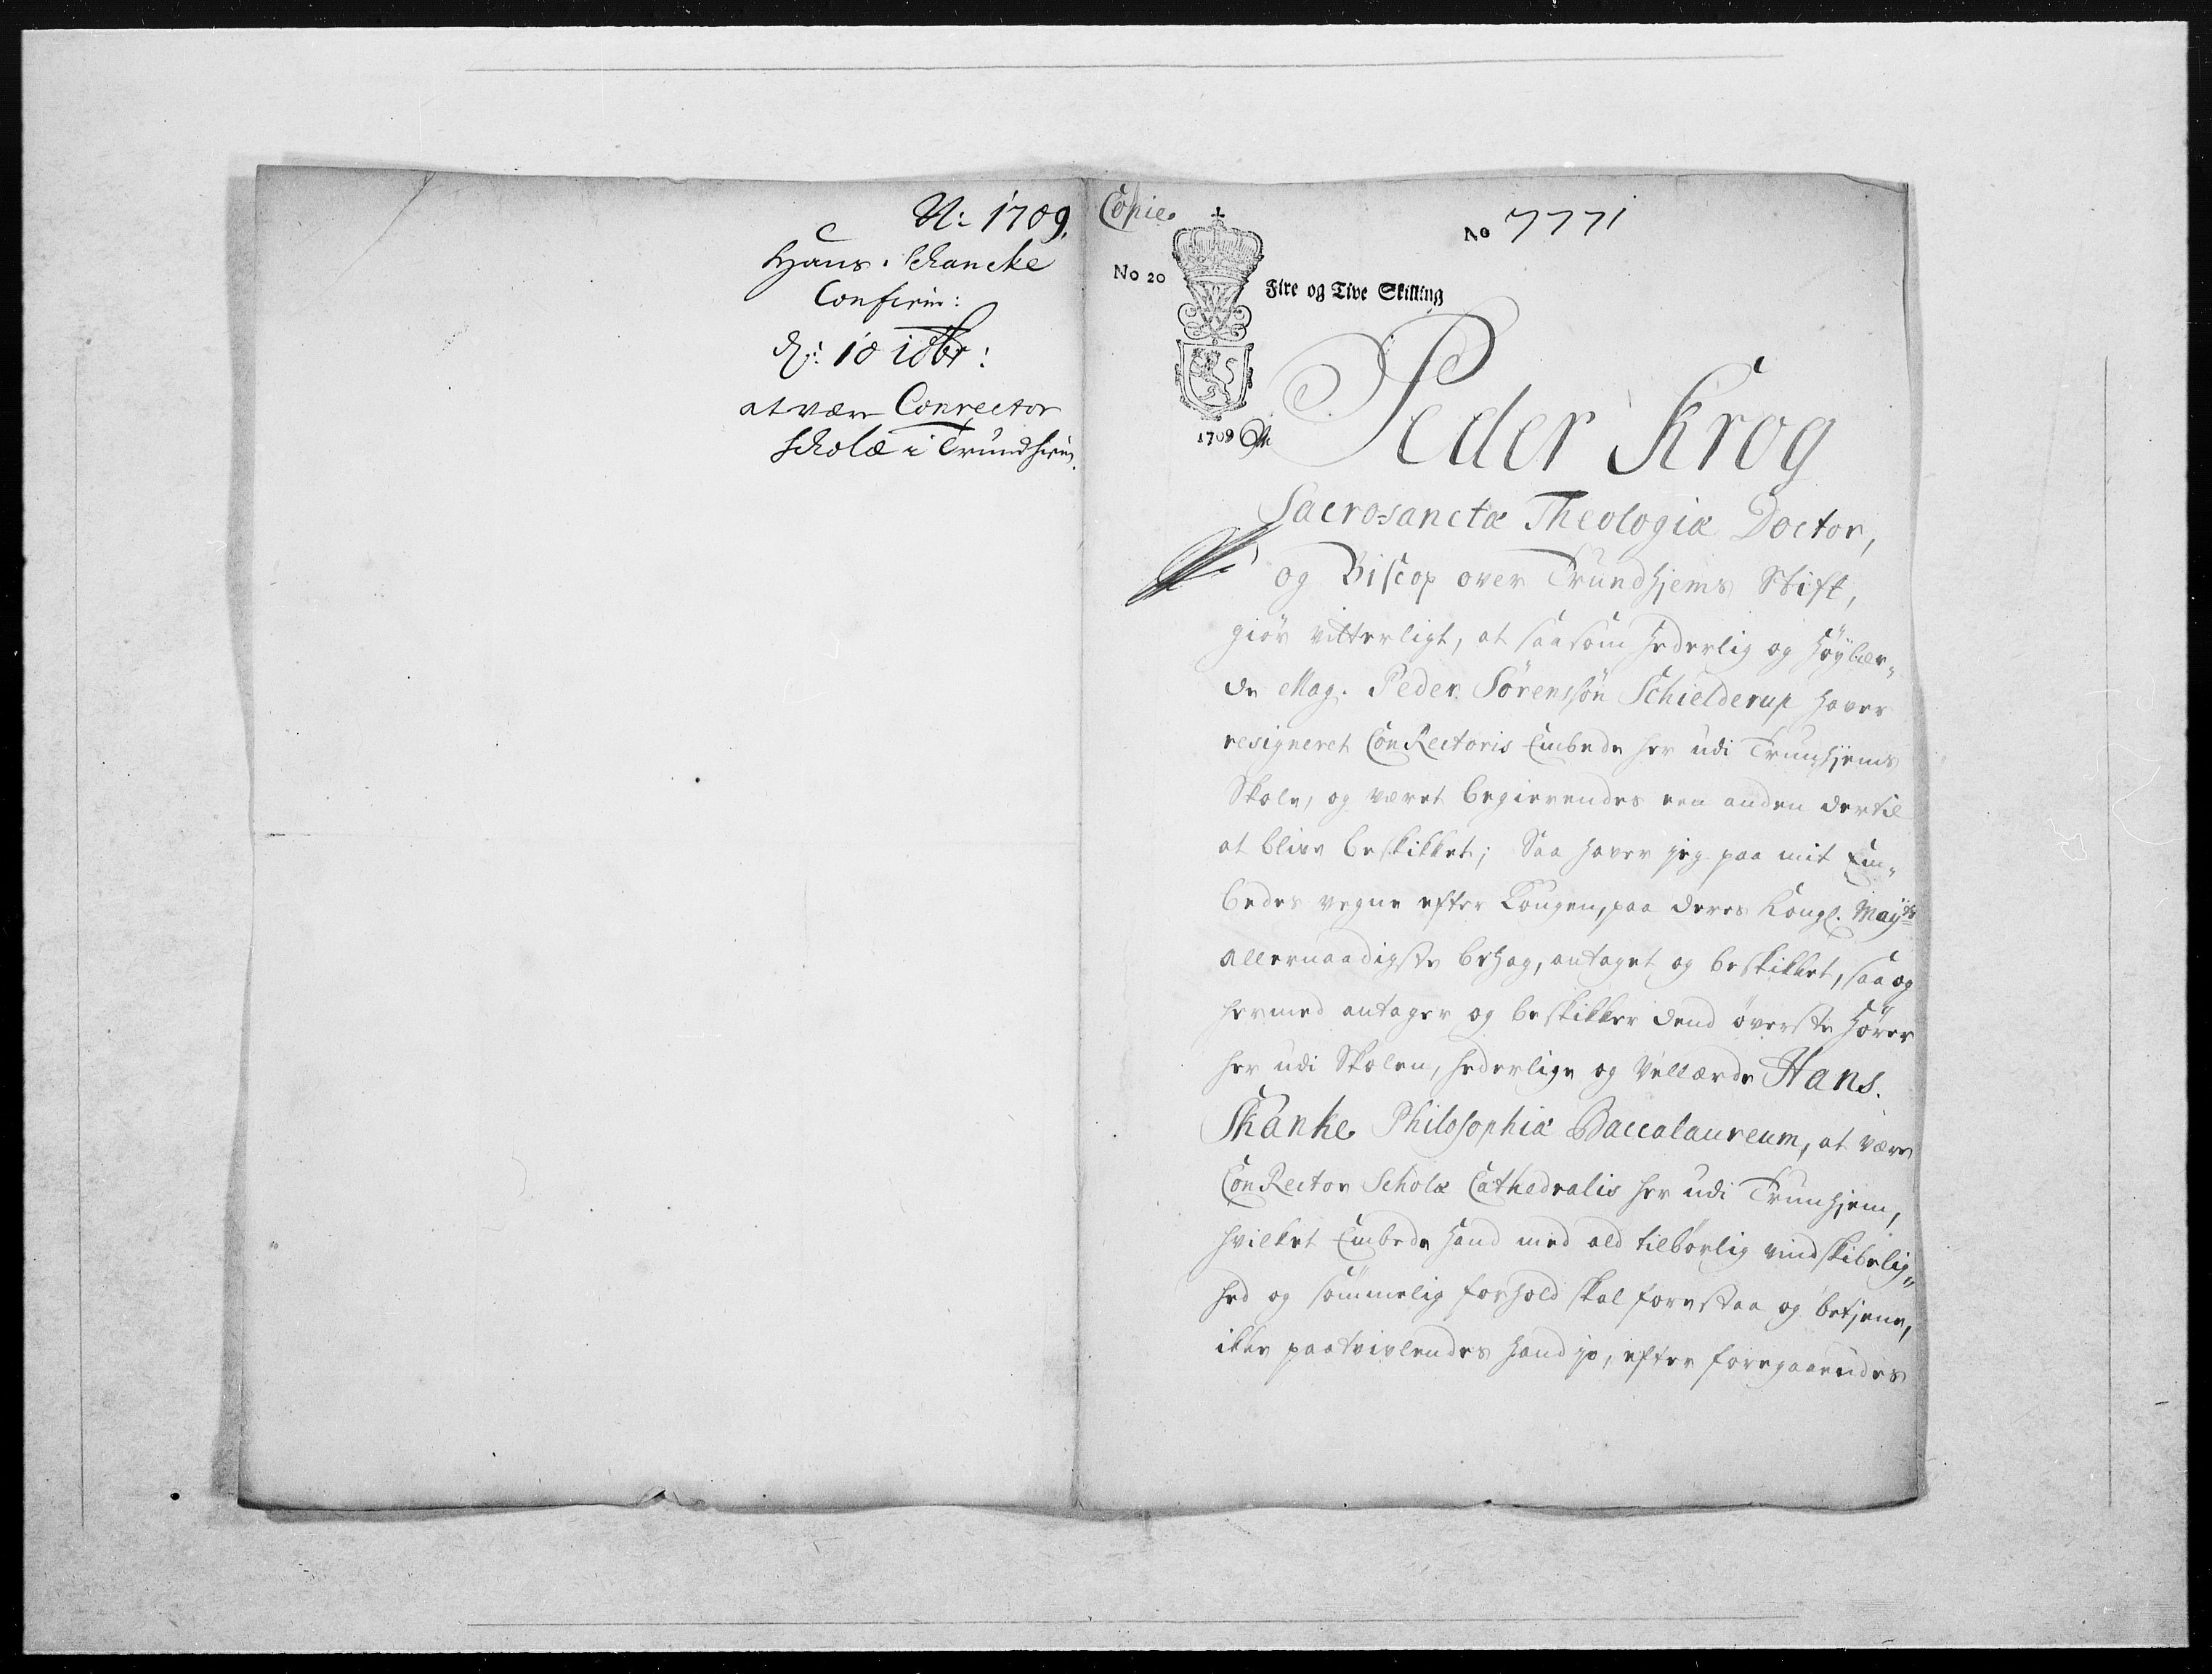 N: 1709.
Hans. Schancke
Confirm:
d: 18 10br:
at være Conrector
scholæ i Trundhiem.
Copie.
No 7771
No 20
Fire og Tive Skilling
1709
Peder Krog
Sacro-sanctæ Theologiæ Doctor,
og Biscop over Trundhjems Stift,
giør vitterligt, at saasom hederlig og Høylær-
de Mag. Peder Sörenssön Schielderup haver
resigneret ConRectoris Embede her udi Trunhjems
Skole, og været begierendes een anden dertil
at blive beskikket; Saa haver jeg paa mit Em-
bedes vegne efter Lougen, paa deres Kongl. Mayts
allernaadigste behag, antaget og beskikket, saa og
hermed antager og beskikker dend øverste Hører
her udi Skolen, hederlige og Vellærde Hans.
Skanke Philosophiæ Baccalaureum, at være
ConRector Scholæ Cathedralis her udi Trunhjem,
hvilket Embede hand med ald tilbørlig vindskibelig-
hed og sömmelig forhold skal forestaa og betjene,
ikke paatvivlendes hand jo, efter foregaaendes